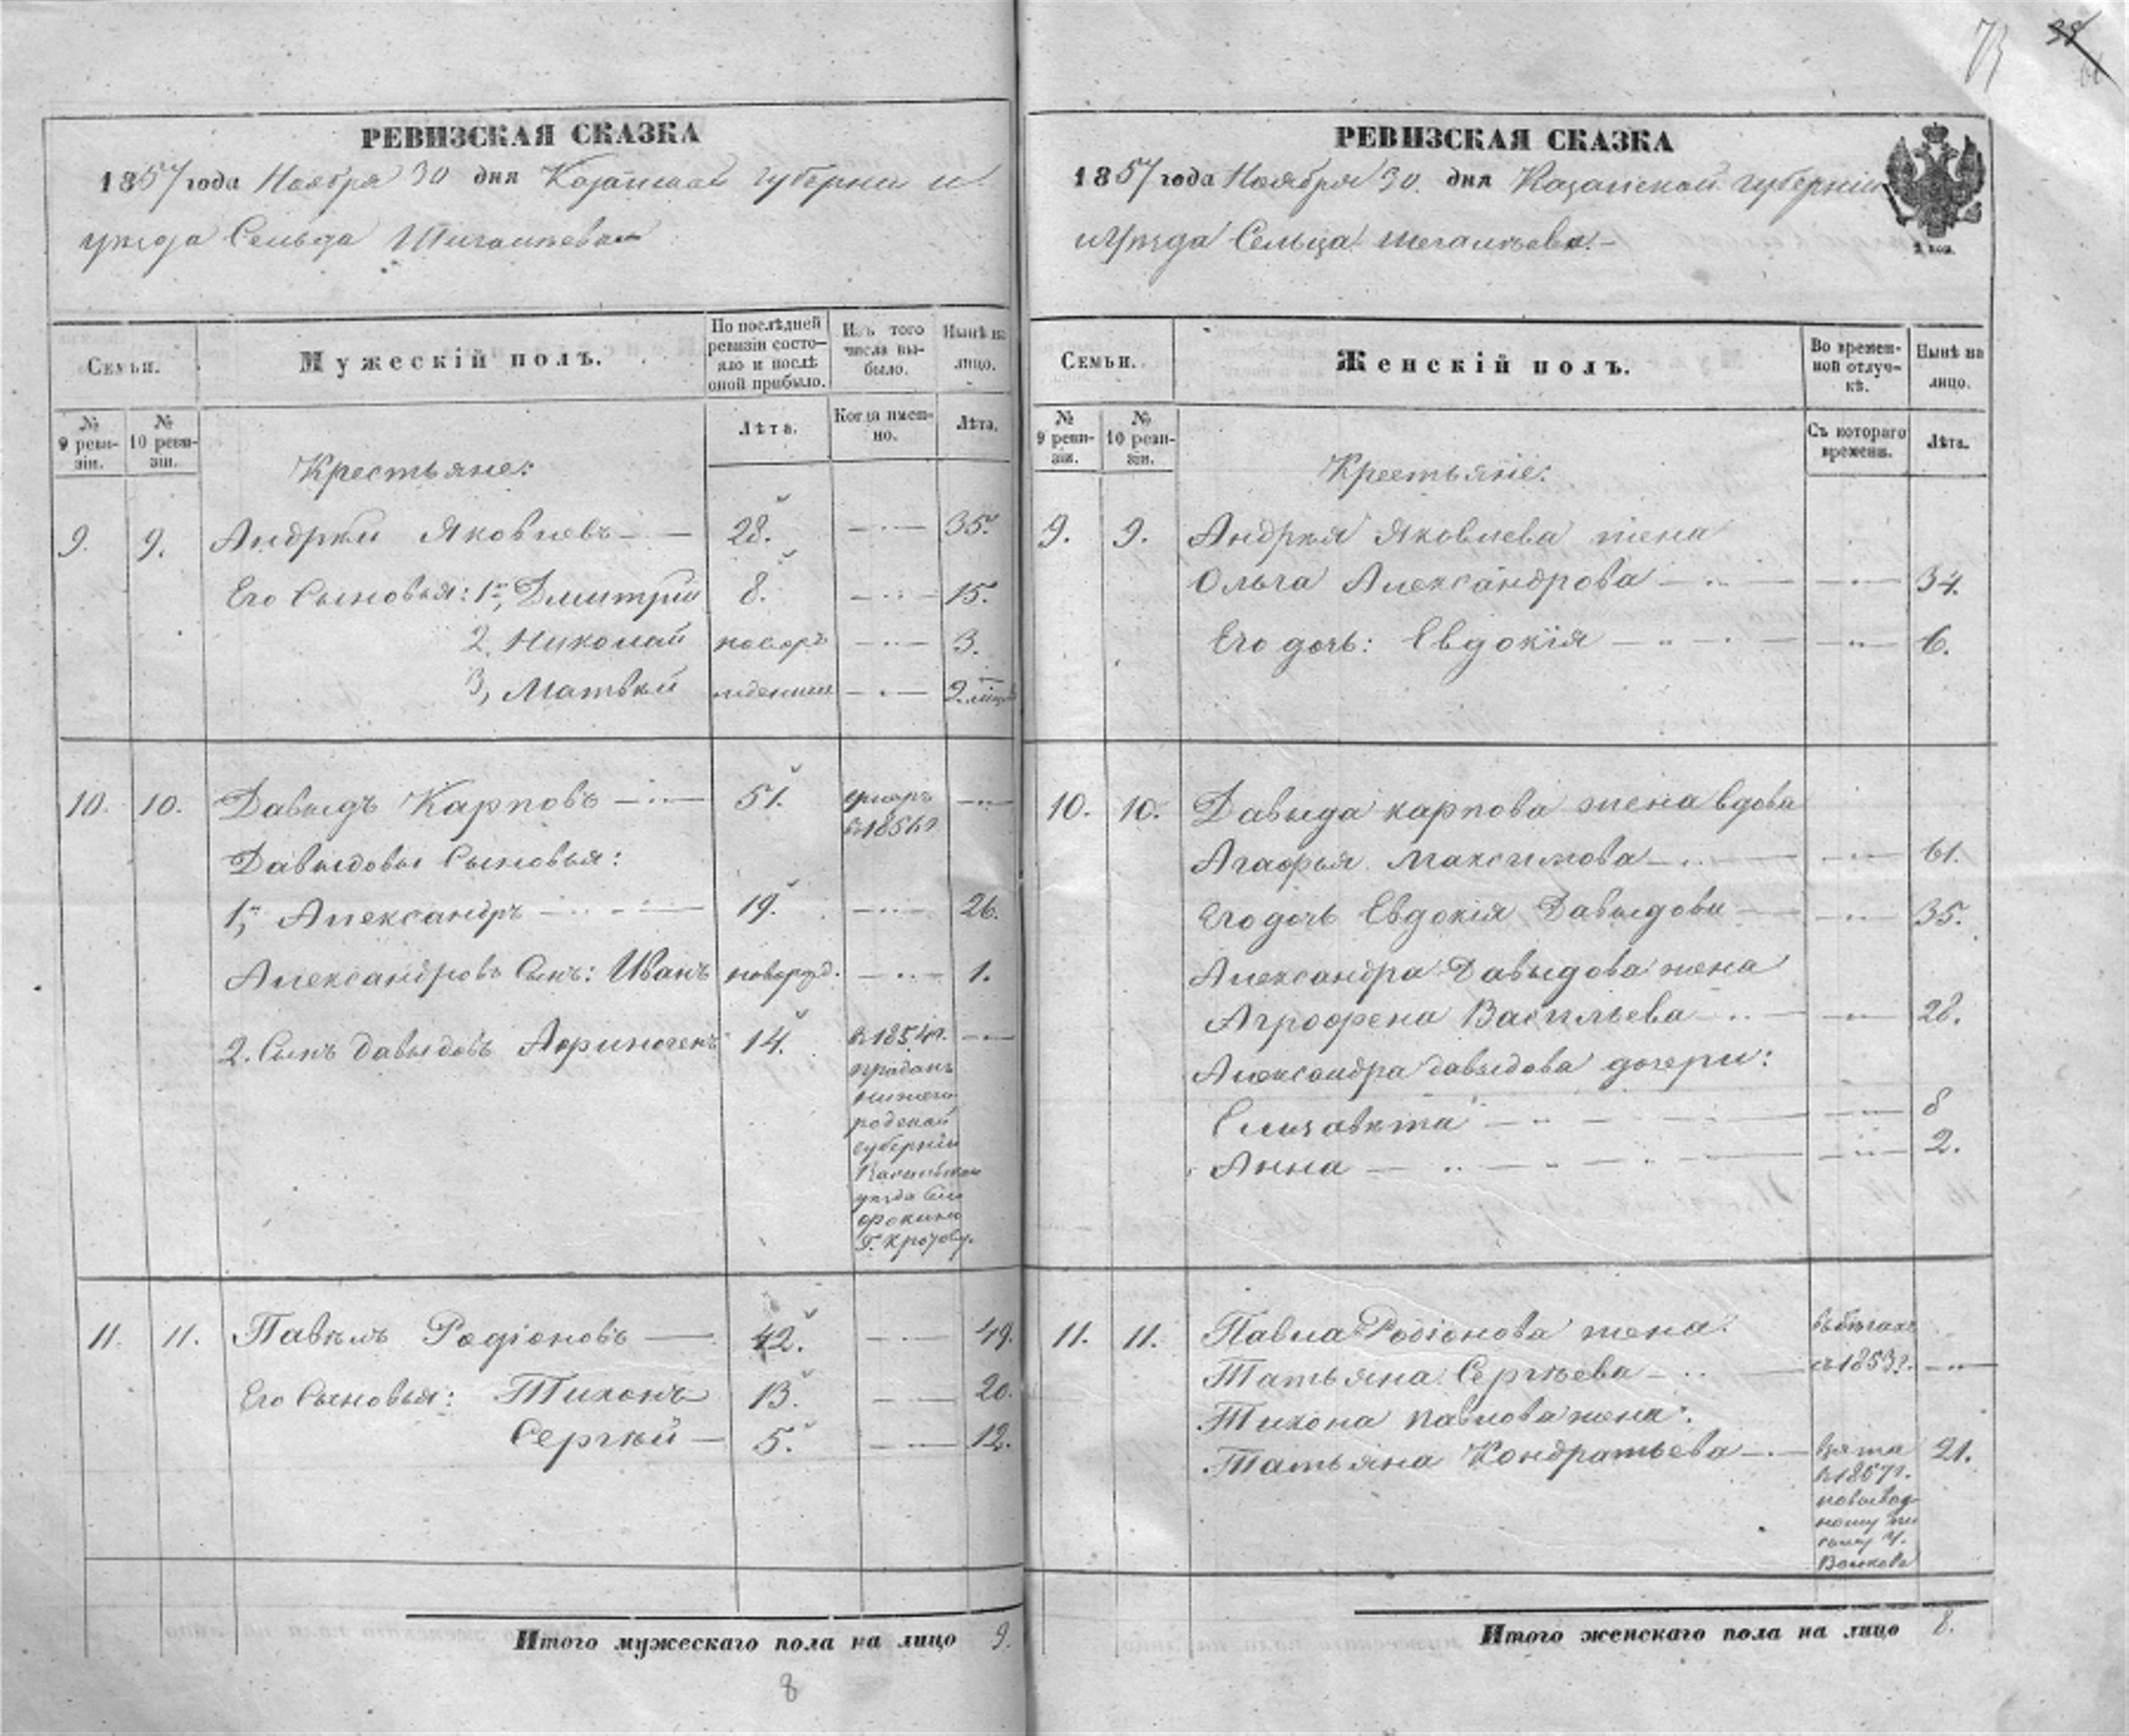 73
38
РЕВИЗСКАЯ СКАЗКА
1857 года Ноября 30 дня Казанской губерніи и
уѣзда Сельца
Семьи.
Мужескій полъ.
По послѣдней ревизіи состояло и послѣ оной прибыло.
Изъ того числа выбыло.
Нынѣ на лицо.
№ 9 ревизіи.
№ 10 ревизіи.
Лѣта.
Когда именно.
Лѣта.
Крестьяне:
9. 9. Андрей Яковлевъ 28. 35.
Его Сыновья: 1й, Дмитрій 8. 15.
2, Николай новоро 3.
3, Матвѣй жденные 2. мѣсяц
10. 10. Давыдъ Карповъ 51. умеръ
въ 1856 г
Давыдовы Сыновья:
1й, Александръ 19. 26.
Александровъ Сынъ: Иванъ новорожд. 1.
2. Сынъ Давыдовъ Афиногенъ 14. въ 1854 г.
проданъ
нижего
родской
губерніи
Васильскаго
уѣзда
Г. Кротову.
11. 11. Павелъ Родіоновъ 42. 49.
Его Сыновья: Тихонъ 13. 20.
Сергѣй 5. 12.
Итого мужескаго пола на лицо 9.
8
РЕВИЗСКАЯ СКАЗКА
1857 года Ноября 30. дня Казанской губерніи
и Уѣзда Сельца
2 коп.
Семьи.
Женскій полъ.
Во временной отлучкѣ.
Нынѣ на лицо.
№ 9 ревизіи.
№ 10 ревизіи.
Съ котораго времени.
Лѣта.
Крестьяне:
9. 9. Андрея Яковлева жена
Ольга Александрова 34.
Его дочь: Евдокія 6.
10. 10. Давыда карпова жена вдова
Агафья Максимова 61.
Его дочь Евдокія Давыдова 35.
Александра Давыдова жена
Агрофена Васильева 28.
Александра давыдова дочери:
Елизавѣта 8
Анна 2.
11. 11. Павла Родіонова жена въ бѣгахъ
Татьяна Сергѣева съ 1853 г.
Тихона павлова жена
Татьяна Кондратьева взята 21.
въ 1857 г.
по вывод
ному пи
сьму Г.
Волкова
Итого женскаго пола на лицо 8.